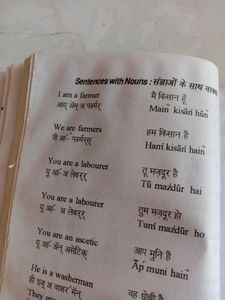 Sentences with Nouns : संज्ञाओं के साथ वाक्य
I am a farmer
मैं किसान हूँ
आइ ॲम् अ फ़ार्मर्
Main kisān hūn
We are farmers
हम किसान हैं
वी आ- फ़ार्मर्स्
Ham kisān hain
You are a labourer
तू मज़दूर है
यू आ- अ लेबरर्
Tū mazdūr hai
You are a labourer
तुम मज़दूर हो
यू आ- अ लेबरर्
Tum mazdūr ho
You are an ascetic
आप मुनि हैं
यू आ- ॲन् असेटिक्
Āp muni hain
He is a washerman
वह धोबी है
ही इज़् अ वाशर्मॅन्
They are